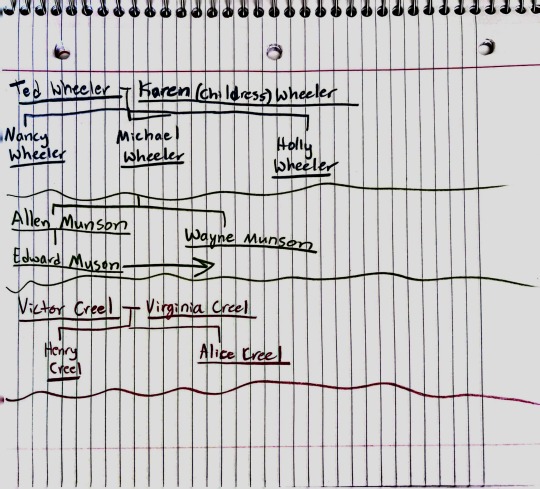 Ted Wheeler Karen (Childress) Wheeler
Nancy Michael Holly
Wheeler Wheeler Wheeler
Allen Munson Wayne Munson
Edward Muson
Victor Creel Virginia Creel
Henry Alice Creel
Creel